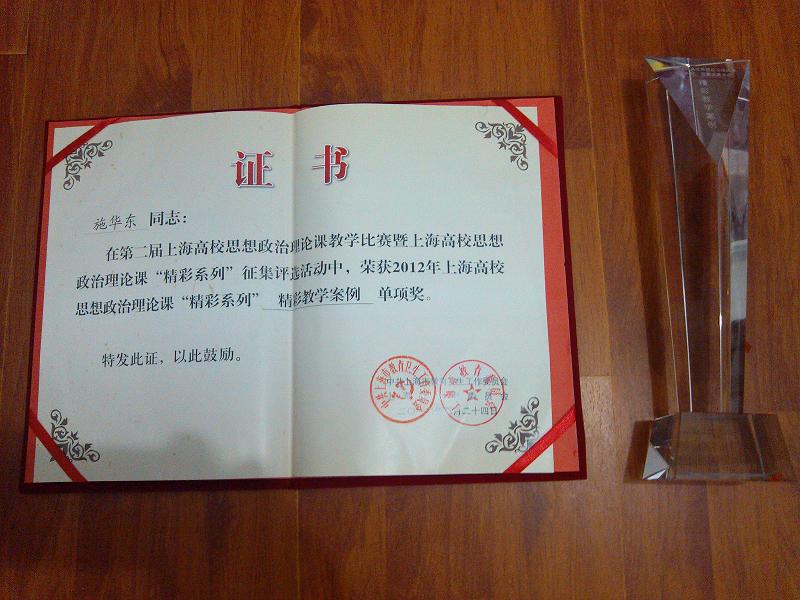 证书
施华东 同志：
在第二届上海高校思想政治理论课教学比赛暨上海高校思想
政治理论课“精彩系列”征集评选活动中，荣获2012年上海高校
思想政治理论课“精彩系列” 精彩教学案例 单项奖。
特发此证，以此鼓励。
中共上海市教育卫生工作委员会
月二十四日
精彩教学案例